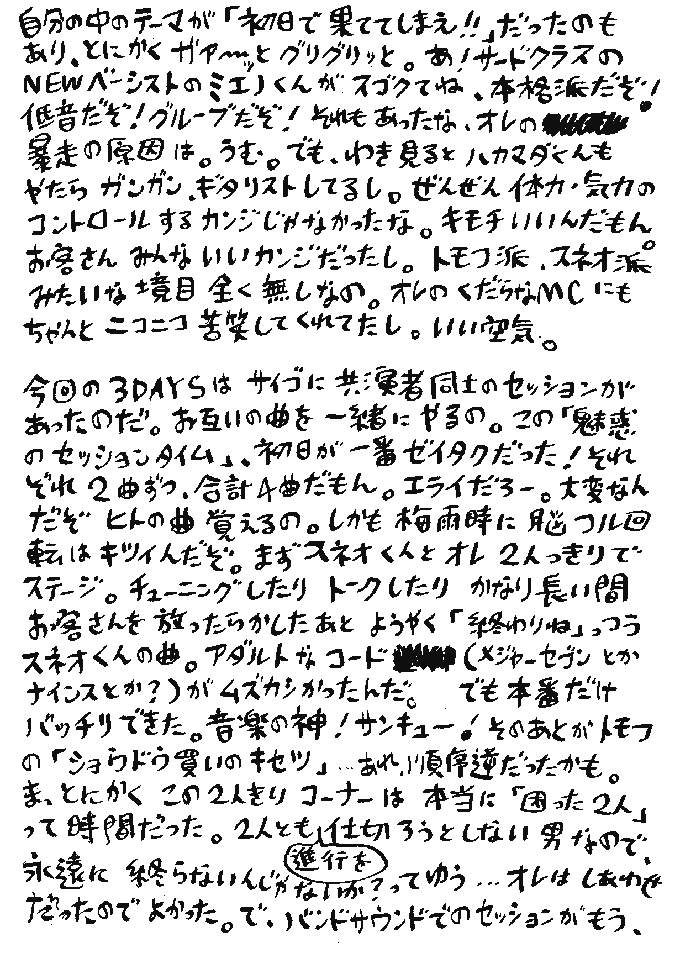 自分の中のテーマが「初日で果ててしまえ!!」だったのも
あり、とにかくガァ〜ッとグリグリッと。あ!サードクラスの
NEWベーシストのミエノくんがスゴクてね、本格派だぞ!
低音だぞ!グルーブだぞ!それもあったな、オレの
暴走の原因は。うむ。でも、わき見るとハカマダくんも
やたらガンガン、ギタリストしてるし。ぜんぜん体力・気力の
コントロールするカンジじゃなかったな。キモチいいんだもん。
お客さんみんないいカンジだったし。トモフ派、スネオ派
みたいな境目全く無しなの。オレのくだらなMCにも
ちゃんとニコニコ苦笑してくれてたし。いい空気。
今回の3DAYSはサイゴに共演者同士のセッションが
あったのだ。お互いの曲を一緒にやるの。この「魅惑
のセッションタイム」、初日が一番ゼイタクだった!それ
ぞれ2曲ずつ、合計4曲だもん。エライだろー。大変なん
だぞヒトの曲覚えるの。しかも梅雨時に脳フル回
転はキツイんだぞ。まずスネオくんとオレ2人っきりで
ステージ。チューニングしたりトークしたりかなり長い間
お客さんを放ったらかしたあとようやく「終わりね」っつう
スネオくんの曲。アダルトなコード(メジャーセブンとか
ナインスとか?)がムズカシかったんだ。でも本番だけ
バッチリできた。音楽の神!サンキュー!そのあとがトモフ
の「ショウドウ買いのキセツ」…あれ、順停逆だったかも。
ま、とにかくこの2人きりコーナーは本当に「困った2人」
って時間だった。2人とも進行を仕切ろうとしない男なので、
永遠に終らないんじゃないか?ってゆう…オレはしあわせ
だったのでよかった。で、バンドサウンドでのセッションがもう、